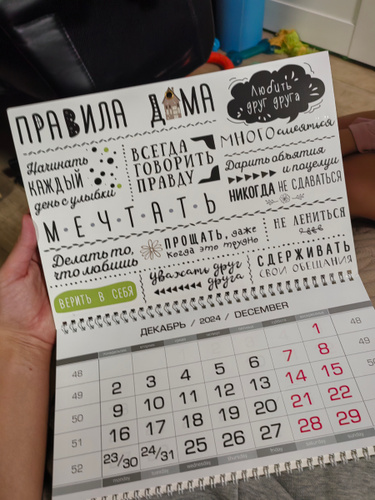 ПРАВИЛА ДОМА
Любить
друг друга
Начинать
КАЖДЫЙ
день с улыбки
ВСЕГДА
ГОВОРИТЬ
ПРАВДУ
МНОГО смеяться
Дарить объятия
и поцелуи
НИКОГДА НЕ СДАВАТЬСЯ
М•Е•Ч•Т•А•Т•Ь
Делать то,
что любишь
ПРОЩАТЬ, даже
когда это трудно
НЕ ЛЕНИТЬСЯ
ВЕРИТЬ В СЕБЯ
уважать друг
друга
СДЕРЖИВАТЬ
СВОИ ОБЕЩАНИЯ
ДЕКАБРЬ / 2024 / DECEMBER
48 1
49 2 3 4 5 6 7 8
50 9 10 11 12 13 14 15
51 16 17 18 19 20 21 22
52 23/30 24/31 25 26 27 28 29
48
49
50
51
52